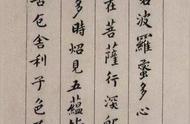 若波羅蜜多心
在菩薩行深般
多時炤見五蘊皆
苦厄舍利子色